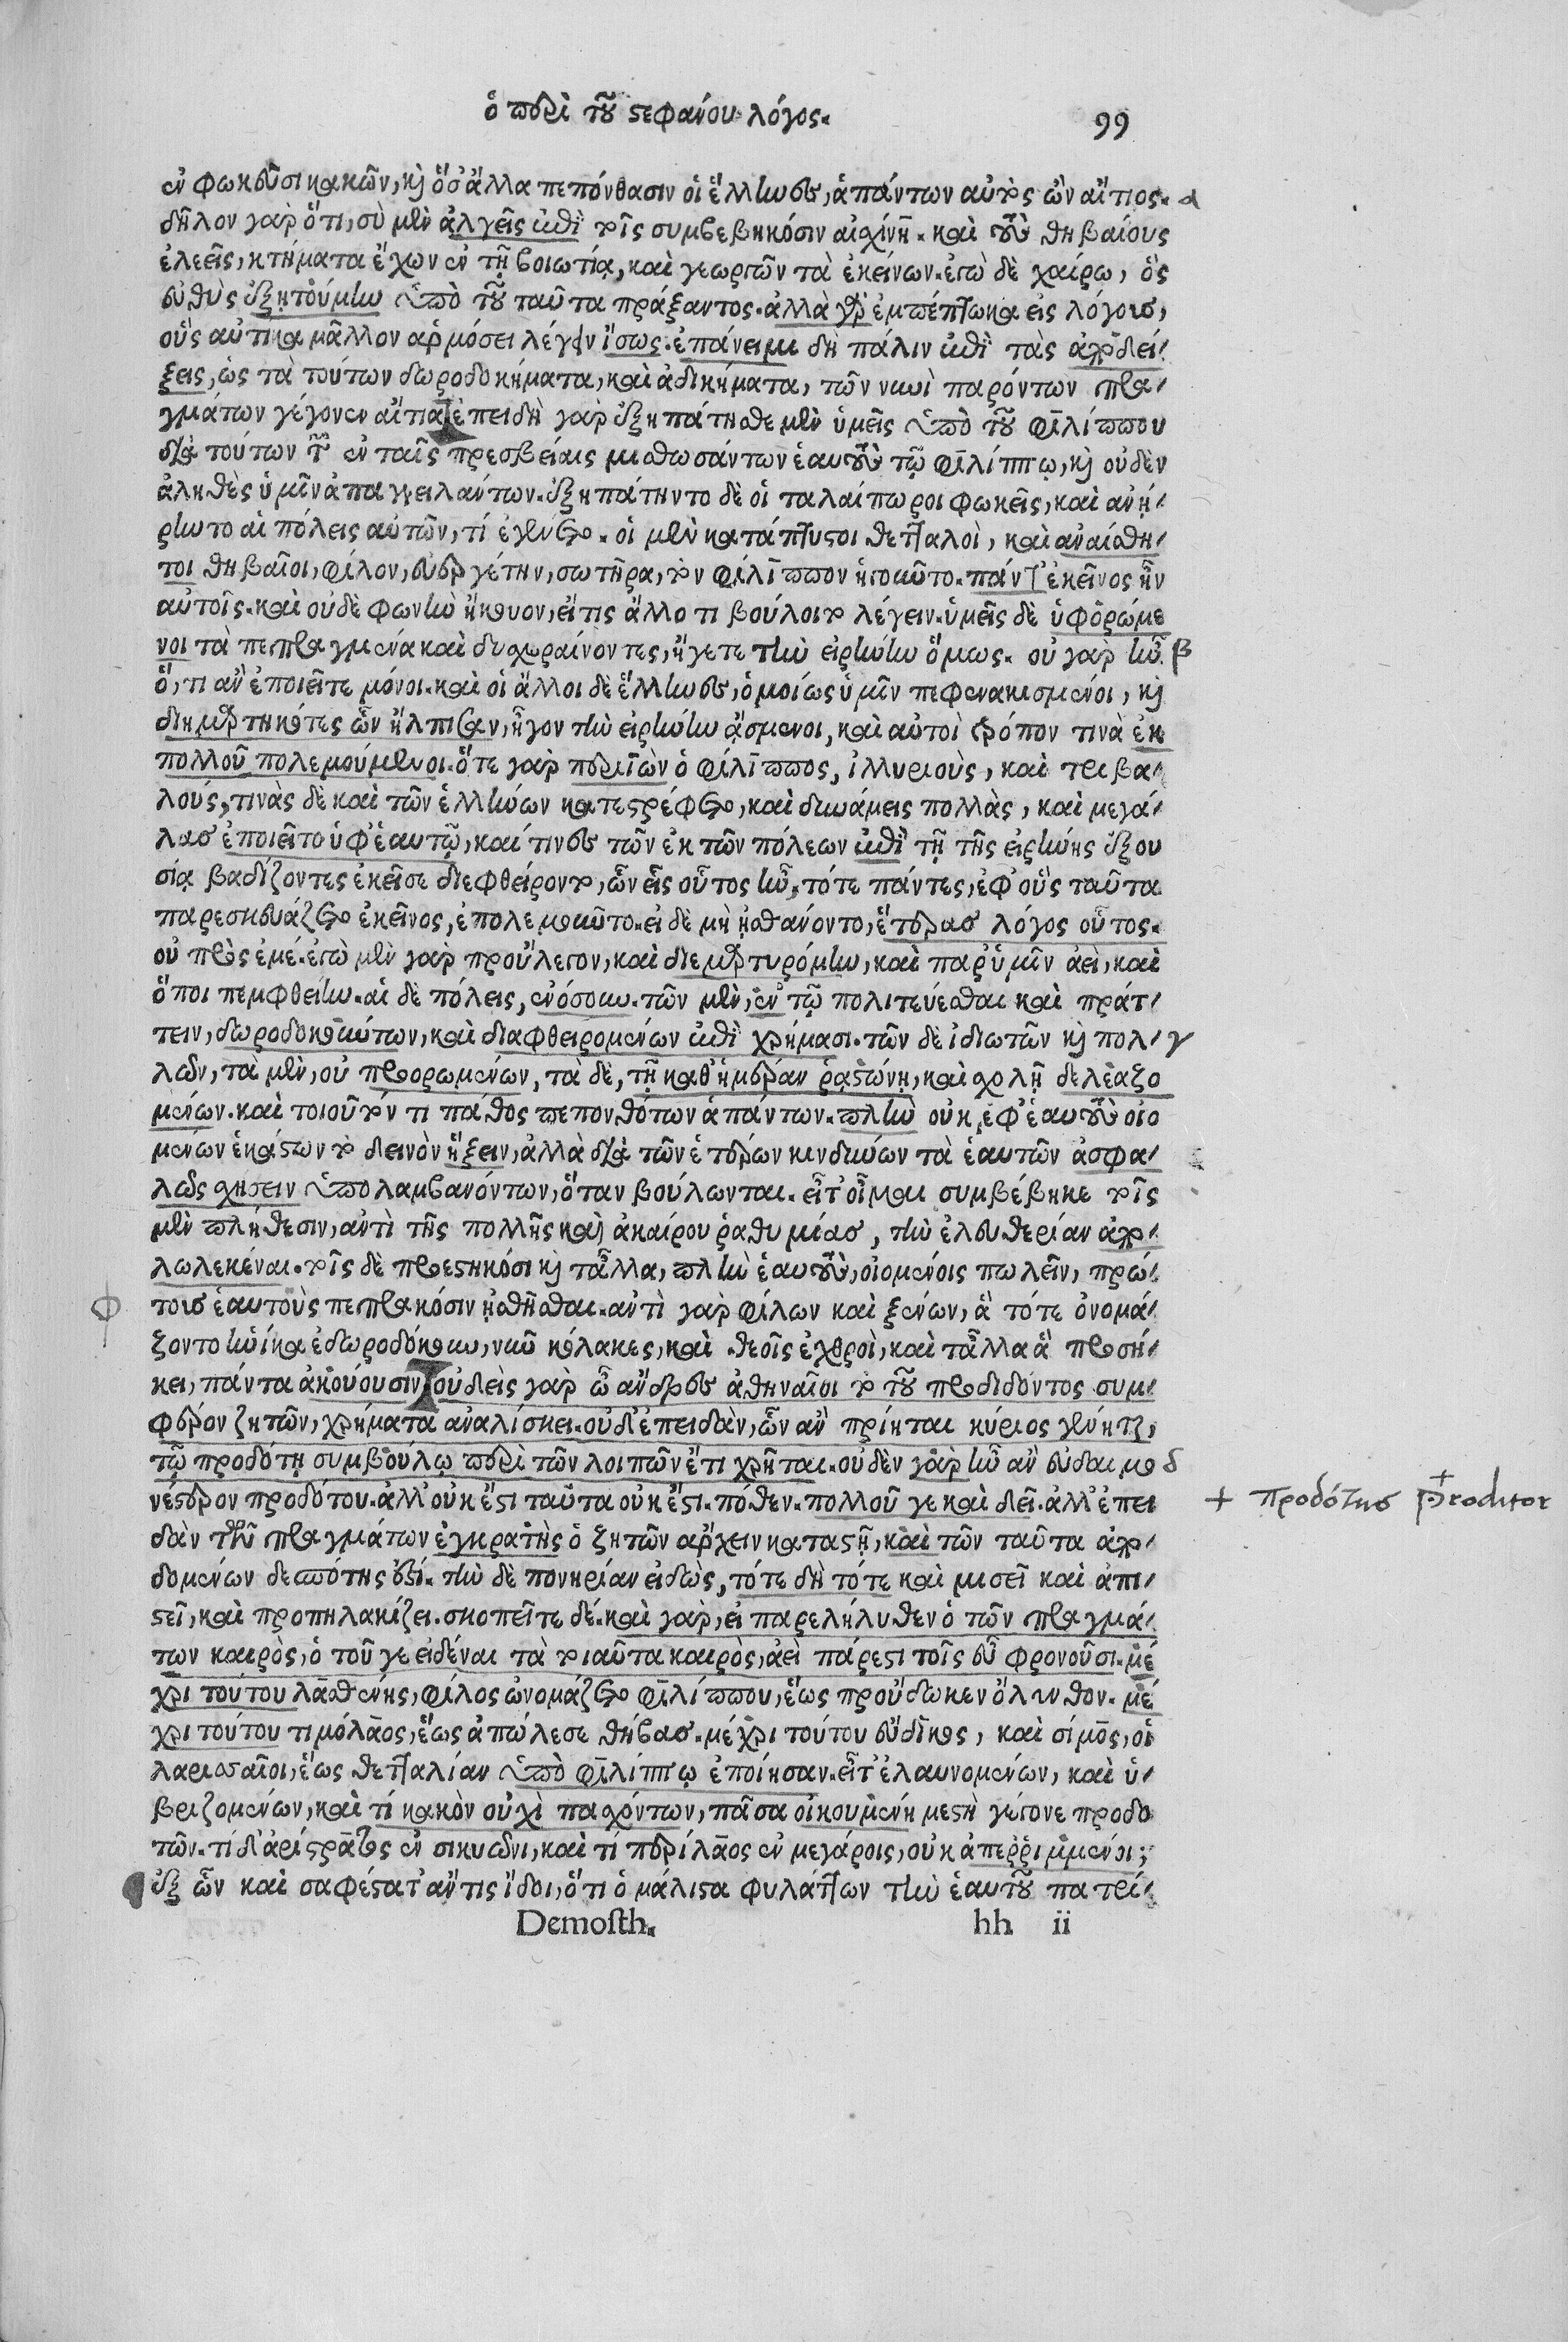 ὁ περὶ τοῦ στεφάνου λόγος.
99
ἐν φωκεῦσι κακῶν, καὶ ὅσ' ἄλλα πεπόνθασιν οἱ ἕλληνες, ἁπάντων αὐτὸς ὢν αἴτιος. α
δῆλον γὰρ ὅτι, σὺ μὲν ἀλγεῖς ἐπὶ τοῖς συμβεβηκόσιν αἰσχίνη. καὶ τοὺς θηβαίους
ἐλεεῖς, κτήματα ἔχων ἐν τῇ βοιωτίᾳ, καὶ γεωργῶν τὰ ἐκείνων. ἐγὼ δὲ χαίρω, ὃς
εὐθὺς ἐξῃτούμην ὑπὸ τοῦ ταῦτα πράξαντος. ἀλλὰ γὰρ ἐμπέπτωκα εἰς λόγους,
οὓς αὐτίκα μᾶλλον ἁρμόσει λέγειν ἴσως. ἐπάνειμι δὴ πάλιν ἐπὶ τὰς ἀποδεί-
ξεις, ὡς τὰ τούτων δωροδοκήματα, καὶ ἀδικήματα, τῶν νυνὶ παρόντων πρα-
γμάτων γέγονεν αἴτια. ἐπειδὴ γὰρ ἐξηπάτησθε μὲν ὑμεῖς ὑπὸ τοῦ φιλίππου
διὰ τούτων τῶν ἐν ταῖς πρεσβείαις μισθωσάντων ἑαυτοὺς τῷ φιλίππῳ, καὶ οὐδὲν
ἀληθὲς ὑμῖν ἀπαγγειλάντων. ἐξηπάτηντο δὲ οἱ ταλαίπωροι φωκεῖς, καὶ ἀνῄ-
ρηντο αἱ πόλεις αὐτῶν, τί ἐγένετο. οἱ μὲν κατάπτυστοι θετταλοὶ, καὶ ἀναίσθη-
τοι θηβαῖοι, φίλον, εὐεργέτην, σωτῆρα, τὸν φίλιππον ἡγοῦντο. πάντ' ἐκεῖνος ἦν
αὐτοῖς. καὶ οὐδὲ φωνὴν ἤκουον, εἴ τις ἄλλο τι βούλοιτο λέγειν. ὑμεῖς δὲ ὑφορώμε
νοι τὰ πεπραγμένα καὶ δυσχεραίνοντες, ἤγετε τὴν εἰρήνην ὅμως. οὐ γὰρ ἦν β
ὅ, τι ἂν ἐποιεῖτε μόνοι. καὶ οἱ ἄλλοι δὲ ἕλληνες, ὁμοίως ὑμῖν πεφενακισμένοι, καὶ
διημαρτηκότες ὧν ἤλπισαν, ἦγον τὴν εἰρήνην ἄσμενοι, καὶ αὐτοὶ τρόπον τινὰ ἐκ
πολλοῦ πολεμούμενοι. ὅτε γὰρ περιϊὼν ὁ φίλιππος, ἰλλυριοὺς, καὶ τριβα-
λούς, τινὰς δὲ καὶ τῶν ἑλλήνων κατεστρέφετο, καὶ δυνάμεις πολλὰς, καὶ μεγά-
λας ἐποιεῖτο ὑφ' ἑαυτῷ, καί τινες τῶν ἐκ τῶν πόλεων ἐπὶ τῇ τῆς εἰρήνης ἐξου
σίᾳ βαδίζοντες ἐκεῖσε διεφθείροντο, ὧν εἷς οὗτος ἦν, τότε πάντες, ἐφ' οὓς ταῦτα
παρεσκευάζετο ἐκεῖνος, ἐπολεμοῦντο. εἰ δὲ μὴ ᾐσθάνοντο, ἕτερος λόγος οὗτος.
οὐ πρὸς ἐμέ. ἐγὼ μὲν γὰρ προὔλεγον, καὶ διεμαρτυρόμην, καὶ παρ' ὑμῖν ἀεὶ, καὶ
ὅποι πεμφθείην. αἱ δὲ πόλεις, ἐνόσουν. τῶν μὲν, ἐν τῷ πολιτεύεσθαι καὶ πράτ-
τειν, δωροδοκούντων, καὶ διαφθειρομένων ἐπὶ χρήμασι. τῶν δὲ ἰδιωτῶν καὶ πολ- γ
λῶν, τὰ μὲν, οὐ προορωμένων, τὰ δὲ, τῇ καθ' ἡμέραν ῥᾳστώνῃ, καὶ σχολῇ δελεαζο
μένων. καὶ τοιοῦτόν τι πάθος πεπονθότων ἁπάντων. πλὴν οὐκ ἐφ' ἑαυτοὺς οἰο
μένων ἑκάστων τὸ δεινὸν ἥξειν, ἀλλὰ διὰ τῶν ἑτέρων κινδύνων τὰ ἑαυτῶν ἀσφα-
λῶς σχήσειν ὑπολαμβανόντων, ὅταν βούλωνται. εἶτ' οἶμαι συμβέβηκε τοῖς
μὲν πλήθεσιν, ἀντὶ τῆς πολλῆς καὶ ἀκαίρου ῥαθυμίας, τὴν ἐλευθερίαν ἀπο-
λωλεκέναι. τοῖς δὲ προεστηκόσι καὶ τἄλλα, πλὴν ἑαυτοὺς, οἰομένοις πωλεῖν, πρώ-
τους ἑαυτοὺς πεπρακόσιν ᾐσθῆσθαι. ἀντὶ γὰρ φίλων καὶ ξένων, ἃ τότε ὀνομά-
ζοντο ἡνίκα ἐδωροδόκουν, νῦν κόλακες, καὶ θεοῖς ἐχθροὶ, καὶ τἄλλα ἃ προσή-
κει, πάντα ἀκούουσιν. οὐδεὶς γὰρ ὦ ἄνδρες ἀθηναῖοι τὸ τοῦ προδιδόντος συμ-
φέρον ζητῶν, χρήματα ἀναλίσκει. οὐδ' ἐπειδὰν, ὧν ἂν πρίηται κύριος γένηται,
τῷ προδότῃ συμβούλῳ περὶ τῶν λοιπῶν ἔτι χρῆται. οὐδὲν γὰρ ἦν ἂν εὐδαιμο δ
νέστερον προδότου. ἀλλ' οὐκ ἔστι ταῦτα οὐκ ἔστι. πόθεν. πολλοῦ γε καὶ δεῖ. ἀλλ' ἐπει
+ προδότης Proditor
δὰν τῶν πραγμάτων ἐγκρατὴς ὁ ζητῶν ἄρχειν καταστῇ, καὶ τῶν ταῦτα ἀπο-
δομένων δεσπότης ἐστί. τὴν δὲ πονηρίαν εἰδὼς, τότε δὴ τότε καὶ μισεῖ καὶ ἀπι-
στεῖ, καὶ προπηλακίζει. σκοπεῖτε δέ. καὶ γὰρ, εἰ παρελήλυθεν ὁ τῶν πραγμά-
των καιρὸς, ὁ τοῦ γε εἰδέναι τὰ τοιαῦτα καιρὸς, ἀεὶ πάρεστι τοῖς εὖ φρονοῦσι. μέ
χρι τούτου λασθένης, φίλος ὠνομάζετο φιλίππου, ἕως προὔδωκεν ὄλυνθον. μέ
χρι τούτου τιμόλαος, ἕως ἀπώλεσε θήβας. μέχρι τούτου εὔδικος, καὶ σίμος, οἱ
λαρισσαῖοι, ἕως θετταλίαν ὑπὸ φιλίππῳ ἐποίησαν. εἶτ' ἐλαυνομένων, καὶ ὑ-
βριζομένων, καὶ τί κακὸν οὐχὶ πασχόντων, πᾶσα οἰκουμένη μεστὴ γέγονε προδο
τῶν. τί δ' ἀρίστρατος ἐν σικυῶνι, καὶ τί περίλαος ἐν μεγάροις, οὐκ ἀπερριμμένοι;
ἐξ ὧν καὶ σαφέστατ' ἄν τις ἴδοι, ὅτι ὁ μάλιστα φυλάττων τὴν ἑαυτοῦ πατρί-
Demosth. hh ii